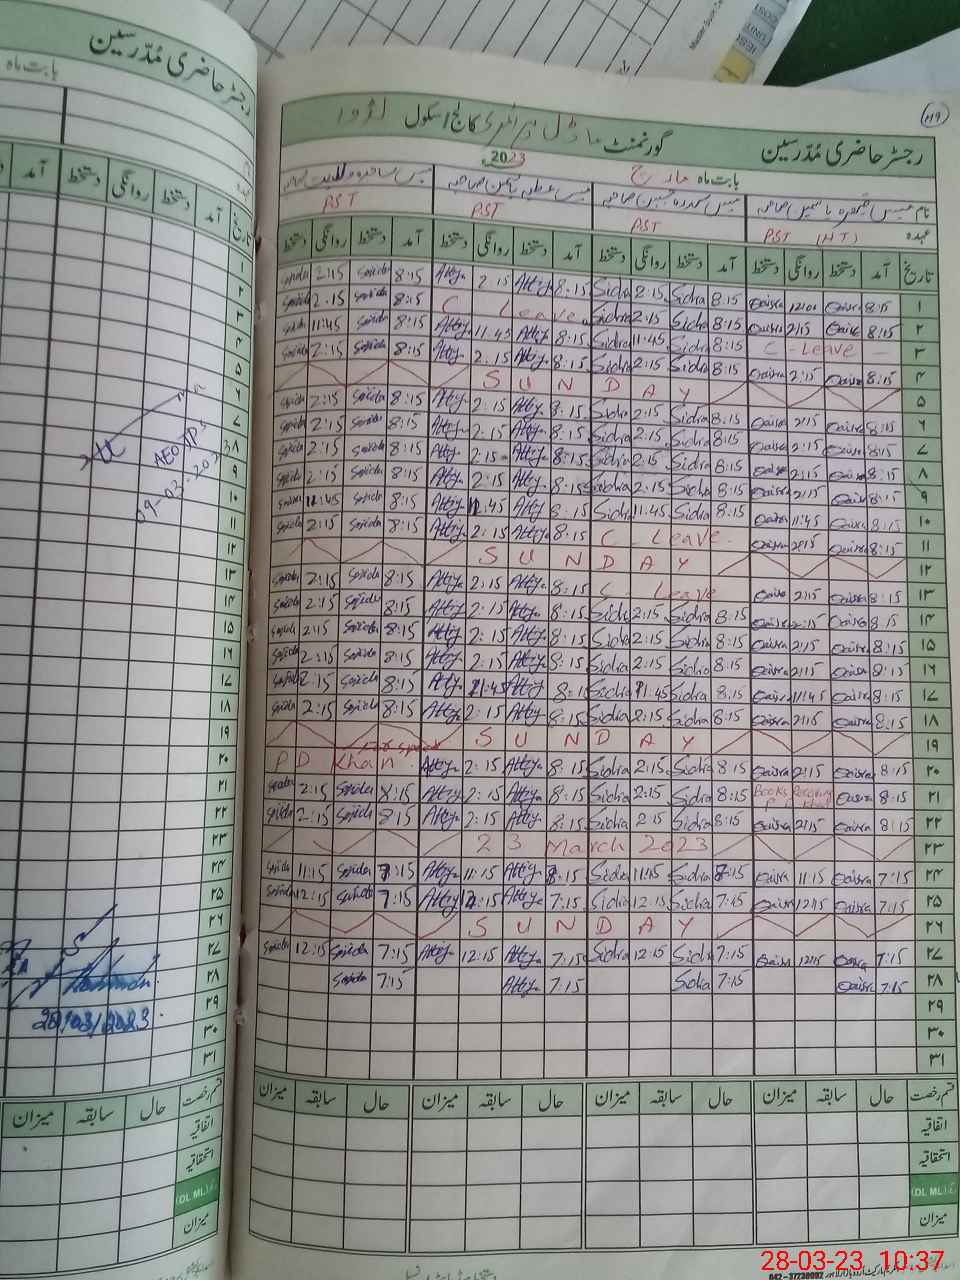 رجسٹر حاضری مُدرّسین
بابت ماہ
آمد دستخط روانگی دستخط آمد تاریخ
۱
۲
۳
۴
۵
۶
۷
۸
۹
۱۰
۱۱
۱۲
۱۳
۱۴
۱۵
۱۶
۱۷
۱۸
۱۹
۲۰
۲۱
۲۲
۲۳
۲۴
۲۵
۲۶
۲۷
۲۸
۲۹
۳۰
۳۱
09-03-2023
28/03/2023
حال سابقہ میزان
قسم رخصت
اتفاقیہ
استحقاقیہ
(DL ML)
میزان
119
رجسٹر حاضری مُدرّسین گورنمنٹ ماڈل پرائمری کالج/سکول
بابت ماہ مارچ 2023
نام
عہدہ PST (HT) PST PST PST
تاریخ آمد دستخط روانگی دستخط آمد دستخط روانگی دستخط آمد دستخط روانگی دستخط آمد دستخط روانگی دستخط
۱ 8:15 Qaisra 12:01 Qaisra 8:15 Sidra 2:15 Sidra 8:15 Attiya 2:15 Attiya 8:15 Sajida 2:15 Sajida
۲ 8:15 Qaisra 2:15 Qaisra 8:15 Sidra 2:15 Sidra C Leave 8:15 Sajida 2:15 Sajida
۳ C - Leave - 8:15 Sidra 11:45 Sidra 8:15 Attiya 11:45 Attiya 8:15 Sajida 11:45 Sajida
۴ 8:15 Qaisra 2:15 Qaisra 8:15 Sidra 2:15 Sidra 8:15 Attiya 2:15 Attiya 8:15 Sajida 2:15 Sajida
۵ SUNDAY
۶ 8:15 Qaisra 2:15 Qaisra 8:15 Sidra 2:15 Sidra 8:15 Attiya 2:15 Attiya 8:15 Sajida 2:15 Sajida
۷ 8:15 Qaisra 2:15 Qaisra 8:15 Sidra 2:15 Sidra 8:15 Attiya 2:15 Attiya 8:15 Sajida 2:15 Sajida
۸ 8:15 Qaisra 2:15 Qaisra 8:15 Sidra 2:15 Sidra 8:15 Attiya 2:15 Attiya 8:15 Sajida 2:15 Sajida
۹ 8:15 Qaisra 2:15 Qaisra 8:15 Sidra 2:15 Sidra 8:15 Attiya 2:15 Attiya 8:15 Sajida 2:15 Sajida
۱۰ 8:15 Qaisra 11:45 Qaisra 8:15 Sidra 11:45 Sidra 8:15 Attiya 11:45 Attiya 8:15 Sajida 11:45 Sajida
۱۱ 8:15 Qaisra 2:15 Qaisra C Leave. 8:15 Attiya 2:15 Attiya 8:15 Sajida 2:15 Sajida
۱۲ SUNDAY
۱۳ 8:15 Qaisra 2:15 Qaisra C - Leave 8:15 Attiya 2:15 Attiya 8:15 Sajida 2:15 Sajida
۱۴ 8:15 Qaisra 2:15 Qaisra 8:15 Sidra 2:15 Sidra 8:15 Attiya 2:15 Attiya 8:15 Sajida 2:15 Sajida
۱۵ 8:15 Qaisra 2:15 Qaisra 8:15 Sidra 2:15 Sidra 8:15 Attiya 2:15 Attiya 8:15 Sajida 2:15 Sajida
۱۶ 8:15 Qaisra 2:15 Qaisra 8:15 Sidra 2:15 Sidra 8:15 Attiya 2:15 Attiya 8:15 Sajida 2:15 Sajida
۱۷ 8:15 Qaisra 11:45 Qaisra 8:15 Sidra 11:45 Sidra 8:15 Attiya 11:45 Attiya 8:15 Sajida 2:15 Sajida
۱۸ 8:15 Qaisra 2:15 Qaisra 8:15 Sidra 2:15 Sidra 8:15 Attiya 2:15 Attiya 8:15 Sajida 2:15 Sajida
۱۹ SUNDAY
۲۰ 8:15 Qaisra 2:15 Qaisra 8:15 Sidra 2:15 Sidra 8:15 Attiya 2:15 Attiya PD Khan
۲۱ 8:15 Qaisra Books Receiving 8:15 Sidra 2:15 Sidra 8:15 Attiya 2:15 Attiya 8:15 Sajida 2:15 Sajida
۲۲ 8:15 Qaisra 2:15 Qaisra 8:15 Sidra 2:15 Sidra 8:15 Attiya 2:15 Attiya 8:15 Sajida 2:15 Sajida
۲۳ 23 March 2023
۲۴ 7:15 Qaisra 11:15 Qaisra 7:15 Sidra 11:45 Sidra 7:15 Attiya 11:15 Attiya 7:15 Sajida 11:15 Sajida
۲۵ 7:15 Qaisra 12:15 Qaisra 7:15 Sidra 12:15 Sidra 7:15 Attiya 12:15 Attiya 7:15 Sajida 12:15 Sajida
۲۶ SUNDAY
۲۷ 7:15 Qaisra 12:15 Qaisra 7:15 Sidra 12:15 Sidra 7:15 Attiya 12:15 Attiya 7:15 Sajida 12:15 Sajida
۲۸ 7:15 Qaisra 7:15 Sidra 7:15 Attiya 7:15 Sajida
۲۹
۳۰
۳۱
قسم رخصت حال سابقہ میزان حال سابقہ میزان حال سابقہ میزان حال سابقہ میزان
اتفاقیہ
استحقاقیہ
(DL ML)
میزان
28-03-23 10:37
042 - 37230092